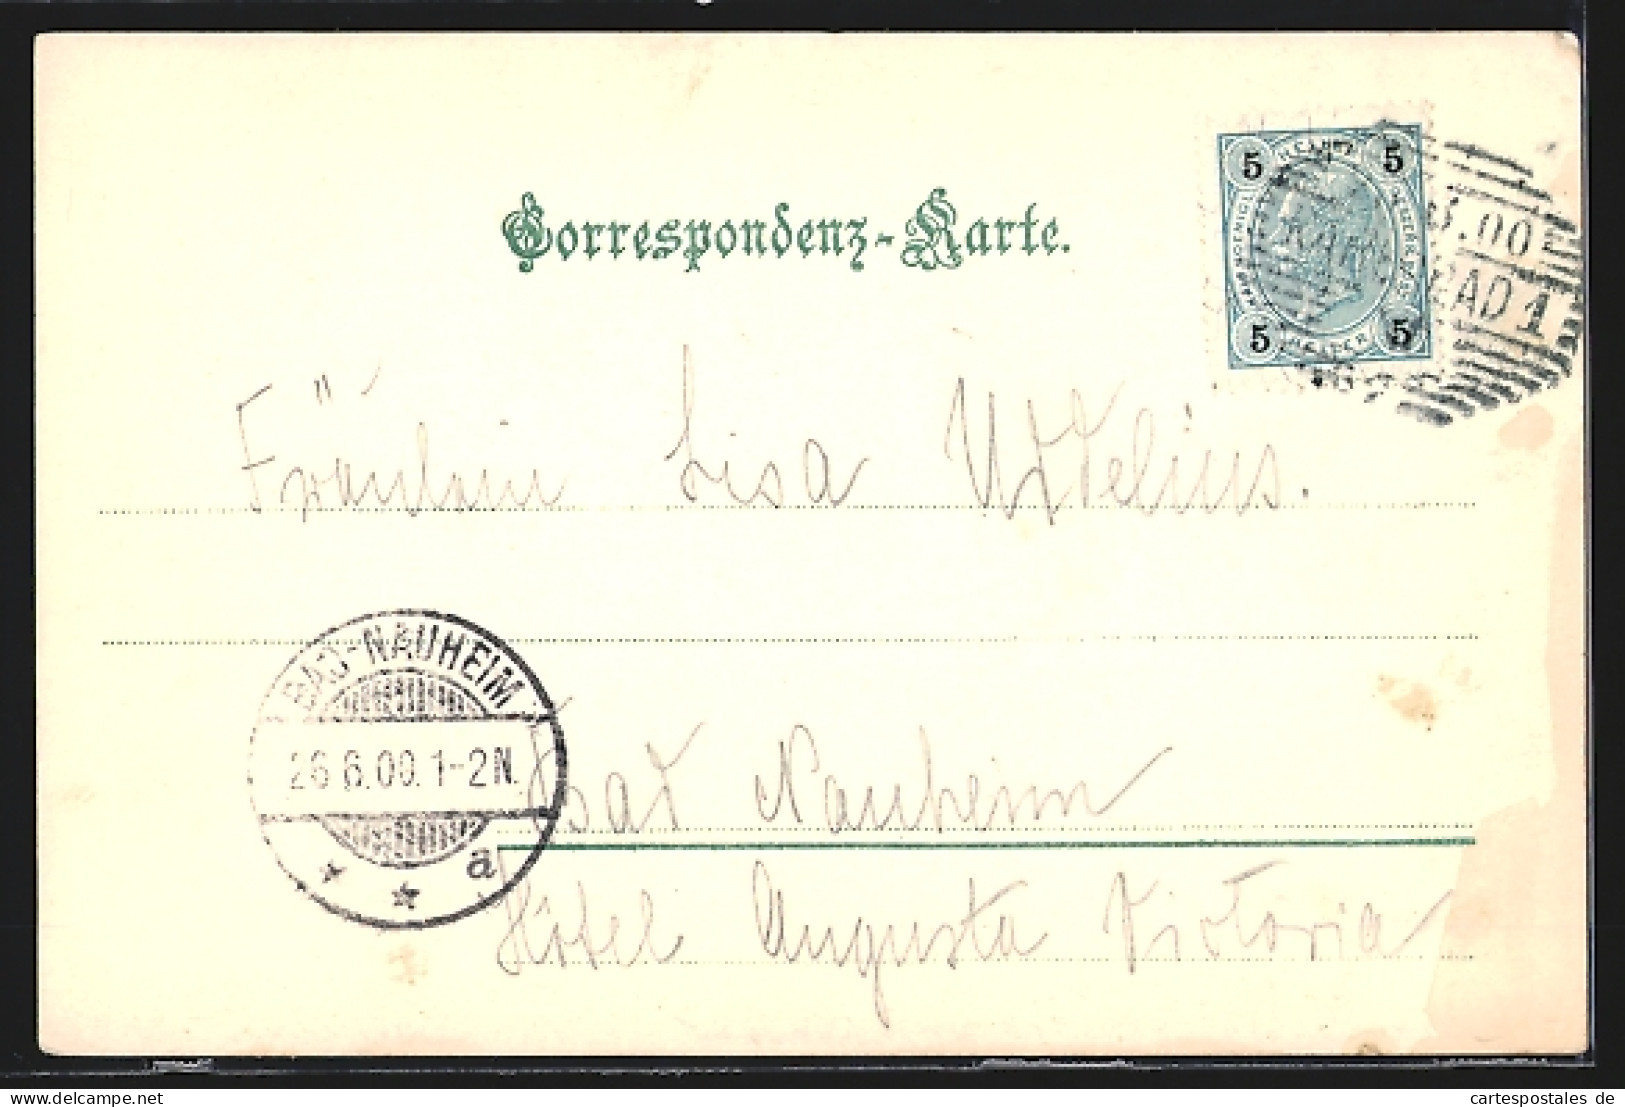 Correspondenz-Karte.
5 5
5 5
.00
BAD 1
Fräulein Lisa
BAD-NAUHEIM
26.6.00.1-2N.
a
Bad Nauheim
Hôtel Augusta Victoria
cartespostales de